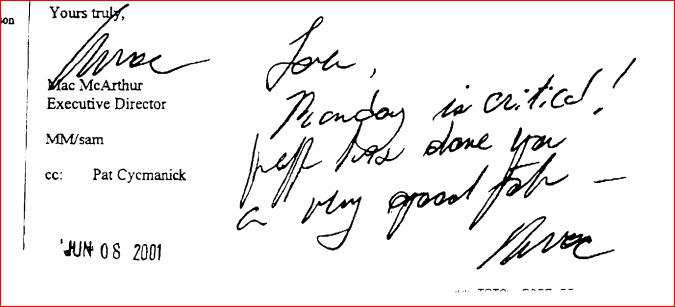 son
Yours truly,
Mac
Mac McArthur
Executive Director
MM/sam
cc: Pat Cycmanick
JUN 08 2001
Monday is critical!
has done you
a very good job —
Mac